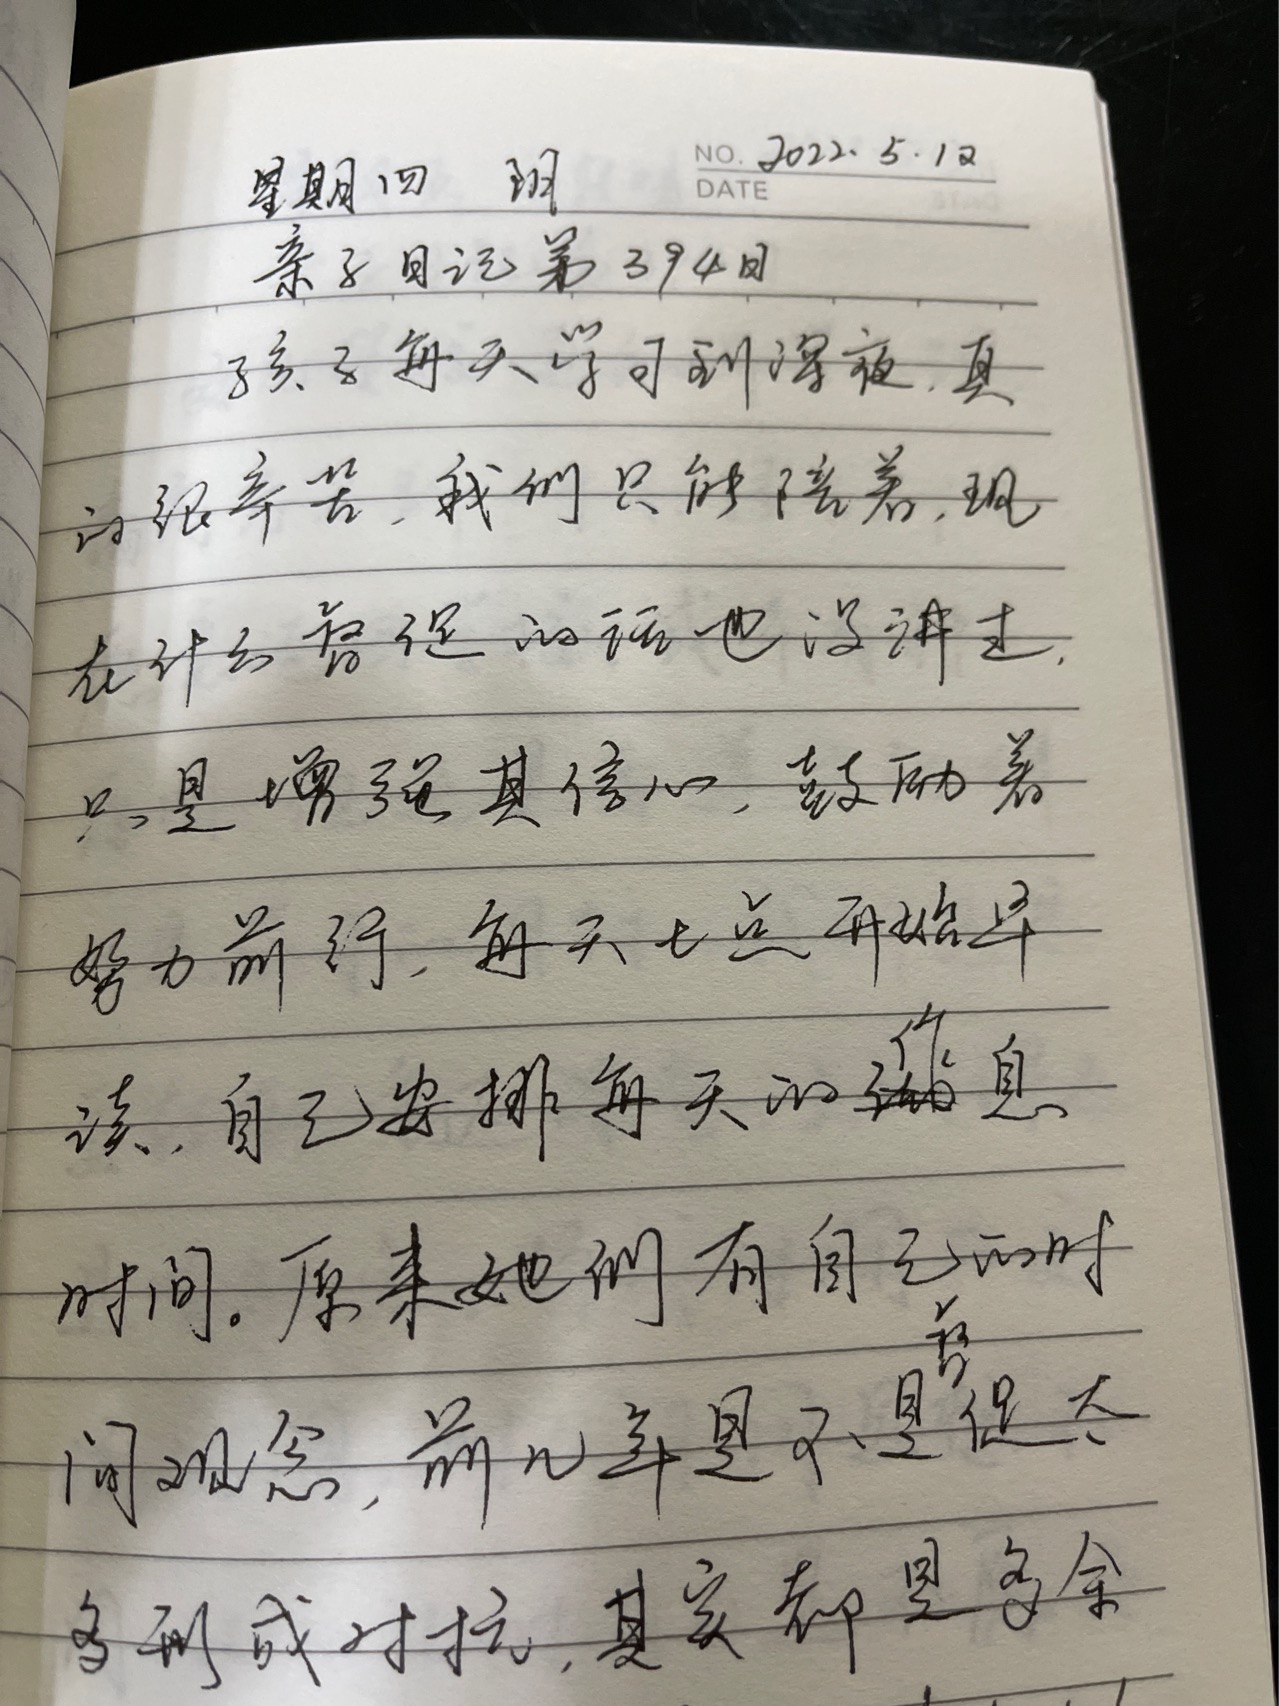 NO. 2022.5.12
DATE
星期四 阴
亲子日记第394日
孩子每天学习到深夜,真
的很辛苦,我们只能陪着,现
在什么督促的话也没讲过,
只是增强其信心,鼓励着
努力前行,每天七点开始早
读,自己安排每天的作息
时间。原来她们有自己的时
间观念,前几年是不是督促太
多形成对抗,其实都是多余